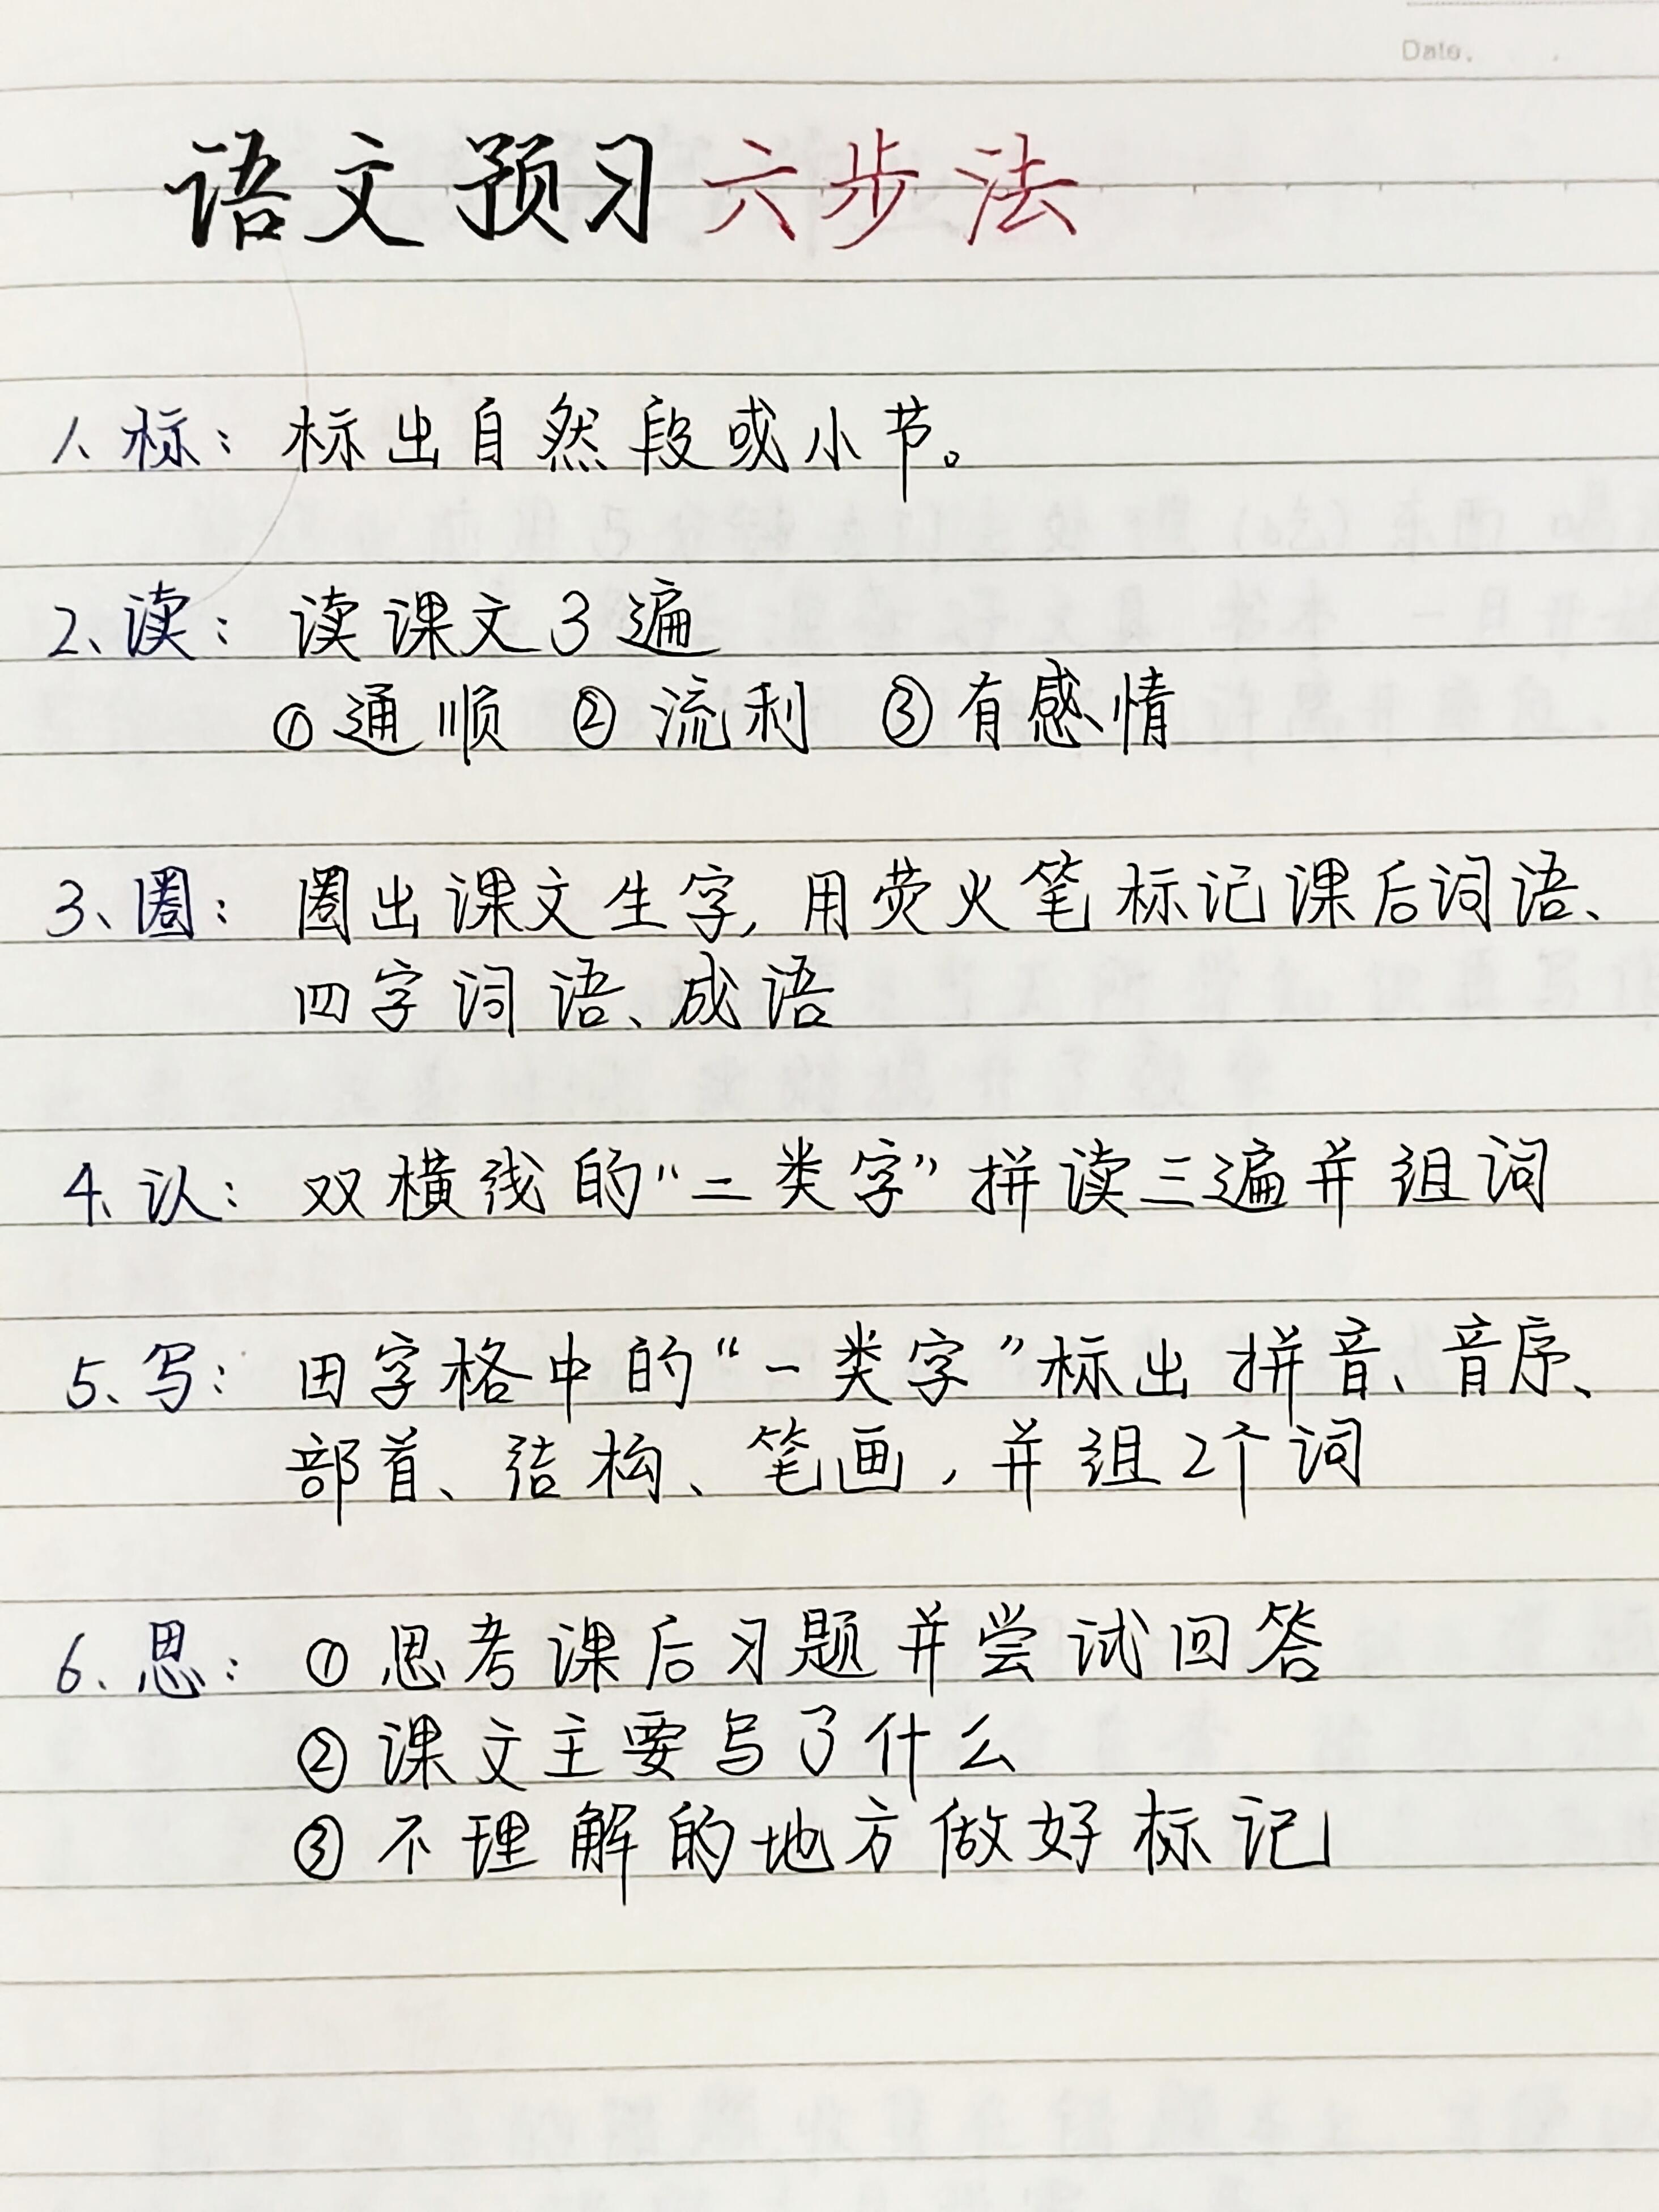 Date.
语文预习六步法
1、标：标出自然段或小节。
2、读：读课文3遍
①通顺 ②流利 ③有感情
3、圈：圈出课文生字，用荧火笔标记课后词语、
四字词语、成语
4、认：双横线的“二类字”拼读三遍并组词
5、写：田字格中的“一类字”标出拼音、音序、
部首、结构、笔画，并组2个词
6、思：①思考课后习题并尝试回答
②课文主要写了什么
③不理解的地方做好标记